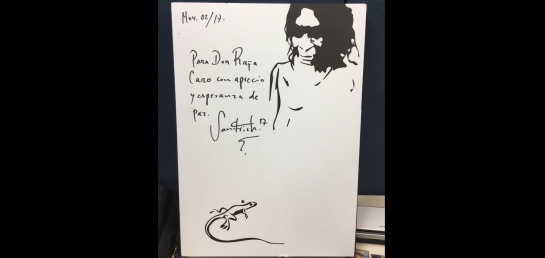 Nov. 02/17.
Para Don Raña
Caro con aprecio
y esperanza de
paz.
Santrich. 17